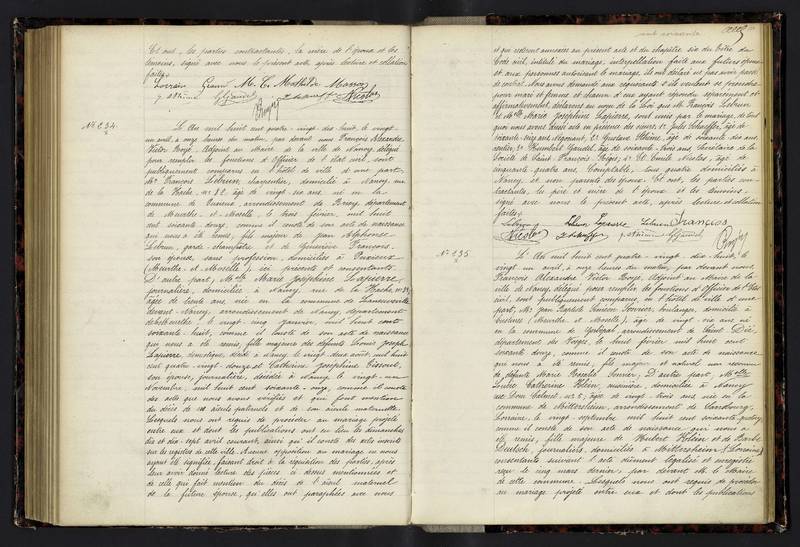 Et ont, les parties contractantes, la mère de l'épouse et les
témoins, signé avec nous le présent acte, après lecture et collation
faites.
Lorrain
Nicolas
N° 234.
L'An mil huit cent quatre-vingt-dix-huit, le vingt-
un avril, à onze heures du matin, par devant nous François Alexandre
Victor Boyé, Adjoint au Maire de la ville de Nancy, délégué
pour remplir les fonctions d'Officier de l'état civil, sont
publiquement comparus en l'hôtel de ville d'une part,
Mr François Lebrun, charpentier, domicilié à Nancy, rue
de la Hache, n° 82, âgé de vingt-six ans, né en la
commune de Puxieux, arrondissement de Briey, département
de Meurthe-et-Moselle, le trois février, mil huit
cent soixante-douze, comme il conste de son acte de naissance
qui nous a été remis, fils majeur de Jean Alphonse
Lebrun, garde-champêtre et de Geneviève François,
son épouse sans profession, domiciliés à Puxieux
(Meurthe-et-Moselle), ici présents et consentants.
D'autre part, Mlle Marie Joséphine Lapierre
journalière, domiciliée à Nancy, rue de la Hache, n° 82,
âgée de trente ans, née en la commune de Laneuveville
devant-Nancy, arrondissement de Nancy, département
de Meurthe, le vingt-cinq janvier, mil huit cent
soixante-huit, comme il conste de son acte de naissance
qui nous a été remis, fille majeure des défunts Louis Joseph
Lapierre, domestique, décédé à Nancy le vingt-deux août, mil huit
cent quatre-vingt-douze et Catherine Joséphine
son épouse, journalière, décédée à Nancy le vingt-un
Novembre, mil huit cent soixante-onze, comme il conste
des actes que nous avons vérifiés et qui font mention
du décès de ses aïeuls paternels et de son aïeule maternelle.
Lesquels nous ont requis de procéder au mariage projeté
entre eux et dont les publications ont eu lieu les dimanches
dix et dix-sept avril courant, ainsi qu'il conste des actes inscrits
sur les registres de cette ville. Aucune opposition au mariage ne nous
ayant été signifiée, faisant droit à la réquisition des parties, après
leur avoir donné lecture des pièces ci-dessus mentionnées et
de celle qui fait mention du décès de l'aïeul maternel
de la future épouse, qu'elles ont paraphées avec nous
et qui resteront annexées au présent acte et du chapitre six du titre du
Code civil, intitulé du mariage, interpellation faite aux futurs époux
et aux personnes autorisant le mariage, ils ont déclaré ne pas avoir passé
de contrat. Nous avons demandé aux requérants s'ils veulent se prendre
pour mari et femme et chacun d'eux ayant répondu séparément et
affirmativement, déclarons au nom de la loi que Mr François Lebrun
et Mlle Marie Joséphine Lapierre, sont unis par le mariage, de tout
quoi nous avons dressé acte en présence des sieurs 1° Jules Schaeffer, âgé de
soixante-cinq ans, 2° Gustave Stéimé, âgé de soixante-dix ans,
rentier, 3° Humbert Gandel, âgé de soixante-trois ans, Secrétaire de la
Société de Saint François Régis; 4° Et Emile Nicolas, âgé de
cinquante-quatre ans, Comptable, tous quatre domiciliés à
Nancy, et non parents des époux. Et ont, les parties con-
tractantes, les père et mère de l'époux et les témoins
signé avec nous le présent acte, après lecture et collation
faites.
Lebrun
Lebrun François
Nicolas
N° 235.
L'An mil huit cent quatre-vingt-dix-huit, le
vingt-un avril, à onze heures du matin, par devant nous,
François Alexandre Victor Boyé, Adjoint au Maire de la
ville de Nancy, délégué pour remplir les fonctions d'Officier de l'état
civil, sont publiquement comparus, en l'hôtel de ville d'une
part, Mr Jean Baptiste boulanger, domicilié à
(Meurthe-et-Moselle), âgé de vingt-six ans, né
en la commune de arrondissement de Saint-Dié,
département des Vosges, le huit février mil huit cent
soixante-douze, comme il conste de son acte de naissance
que nous a été remis, fils majeur et naturel non reconnu
de défunte Marie D'autre part, Mlle
Louise Catherine Klein, cuisinière, domiciliée à Nancy
rue Dom Calmet, n° 8, âgée de vingt-trois ans, née en la
commune de Mittersheim, arrondissement de Sarrebourg,
Lorraine, le vingt septembre mil huit cent soixante-quatorze,
comme il conste de son acte de naissance qui nous a
été remis, fille majeure de Hubert Klein et de Barbe
Deutsch, journaliers, domiciliés à Mittersheim (Lorraine)
consentants suivant l'acte dûment légalisé et enregistré
reçu le cinq mars dernier, par devant Mr le Maire
de cette commune. Lesquels nous ont requis de procéder
au mariage projeté entre eux et dont les publications